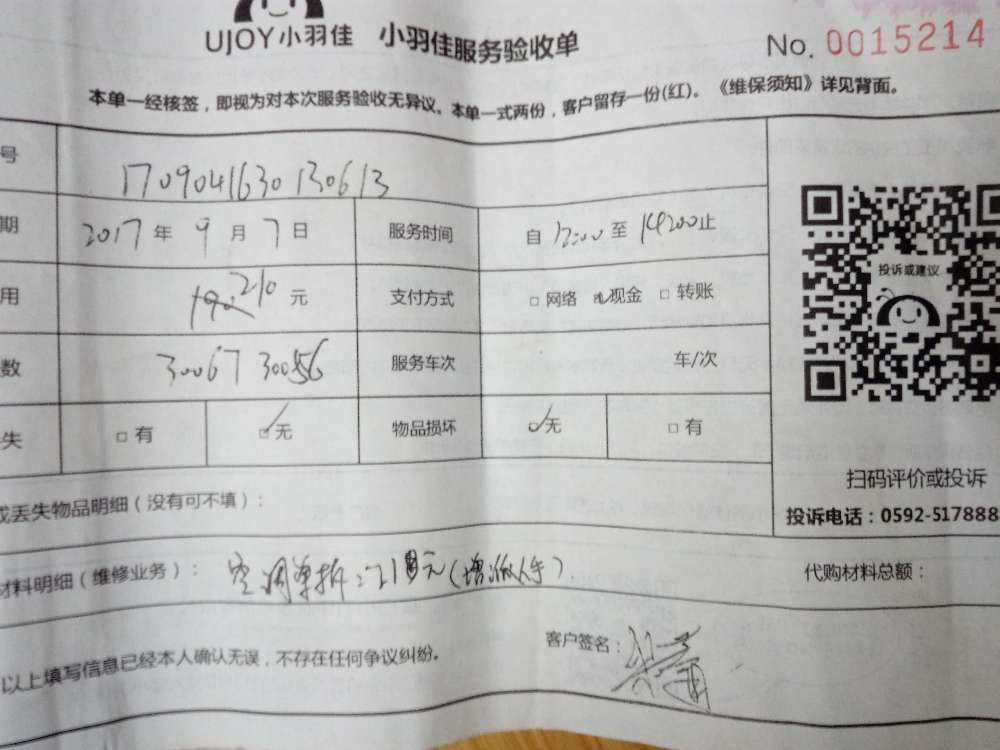 UJOY小羽佳 小羽佳服务验收单 No. 0015214
本单一经核签，即视为对本次服务验收无异议。本单一式两份，客户留存一份(红)。《维保须知》详见背面。
号 1709041630130613
期 2017 年 9 月 7 日 服务时间 自 12:00 至 14:00止
用 210 元 支付方式 □ 网络 现金 □ 转账
数 30067 30056 服务车次 车/次
失 □ 有 ☑ 无 物品损坏 ☑ 无 □ 有
投诉或建议
扫码评价或投诉
投诉电话：0592-517888
或丢失物品明细（没有可不填）：
材料明细（维修业务）： 空调单拆：210元（增派人手） 代购材料总额：
以上填写信息已经本人确认无误，不存在任何争议纠纷。 客户签名：